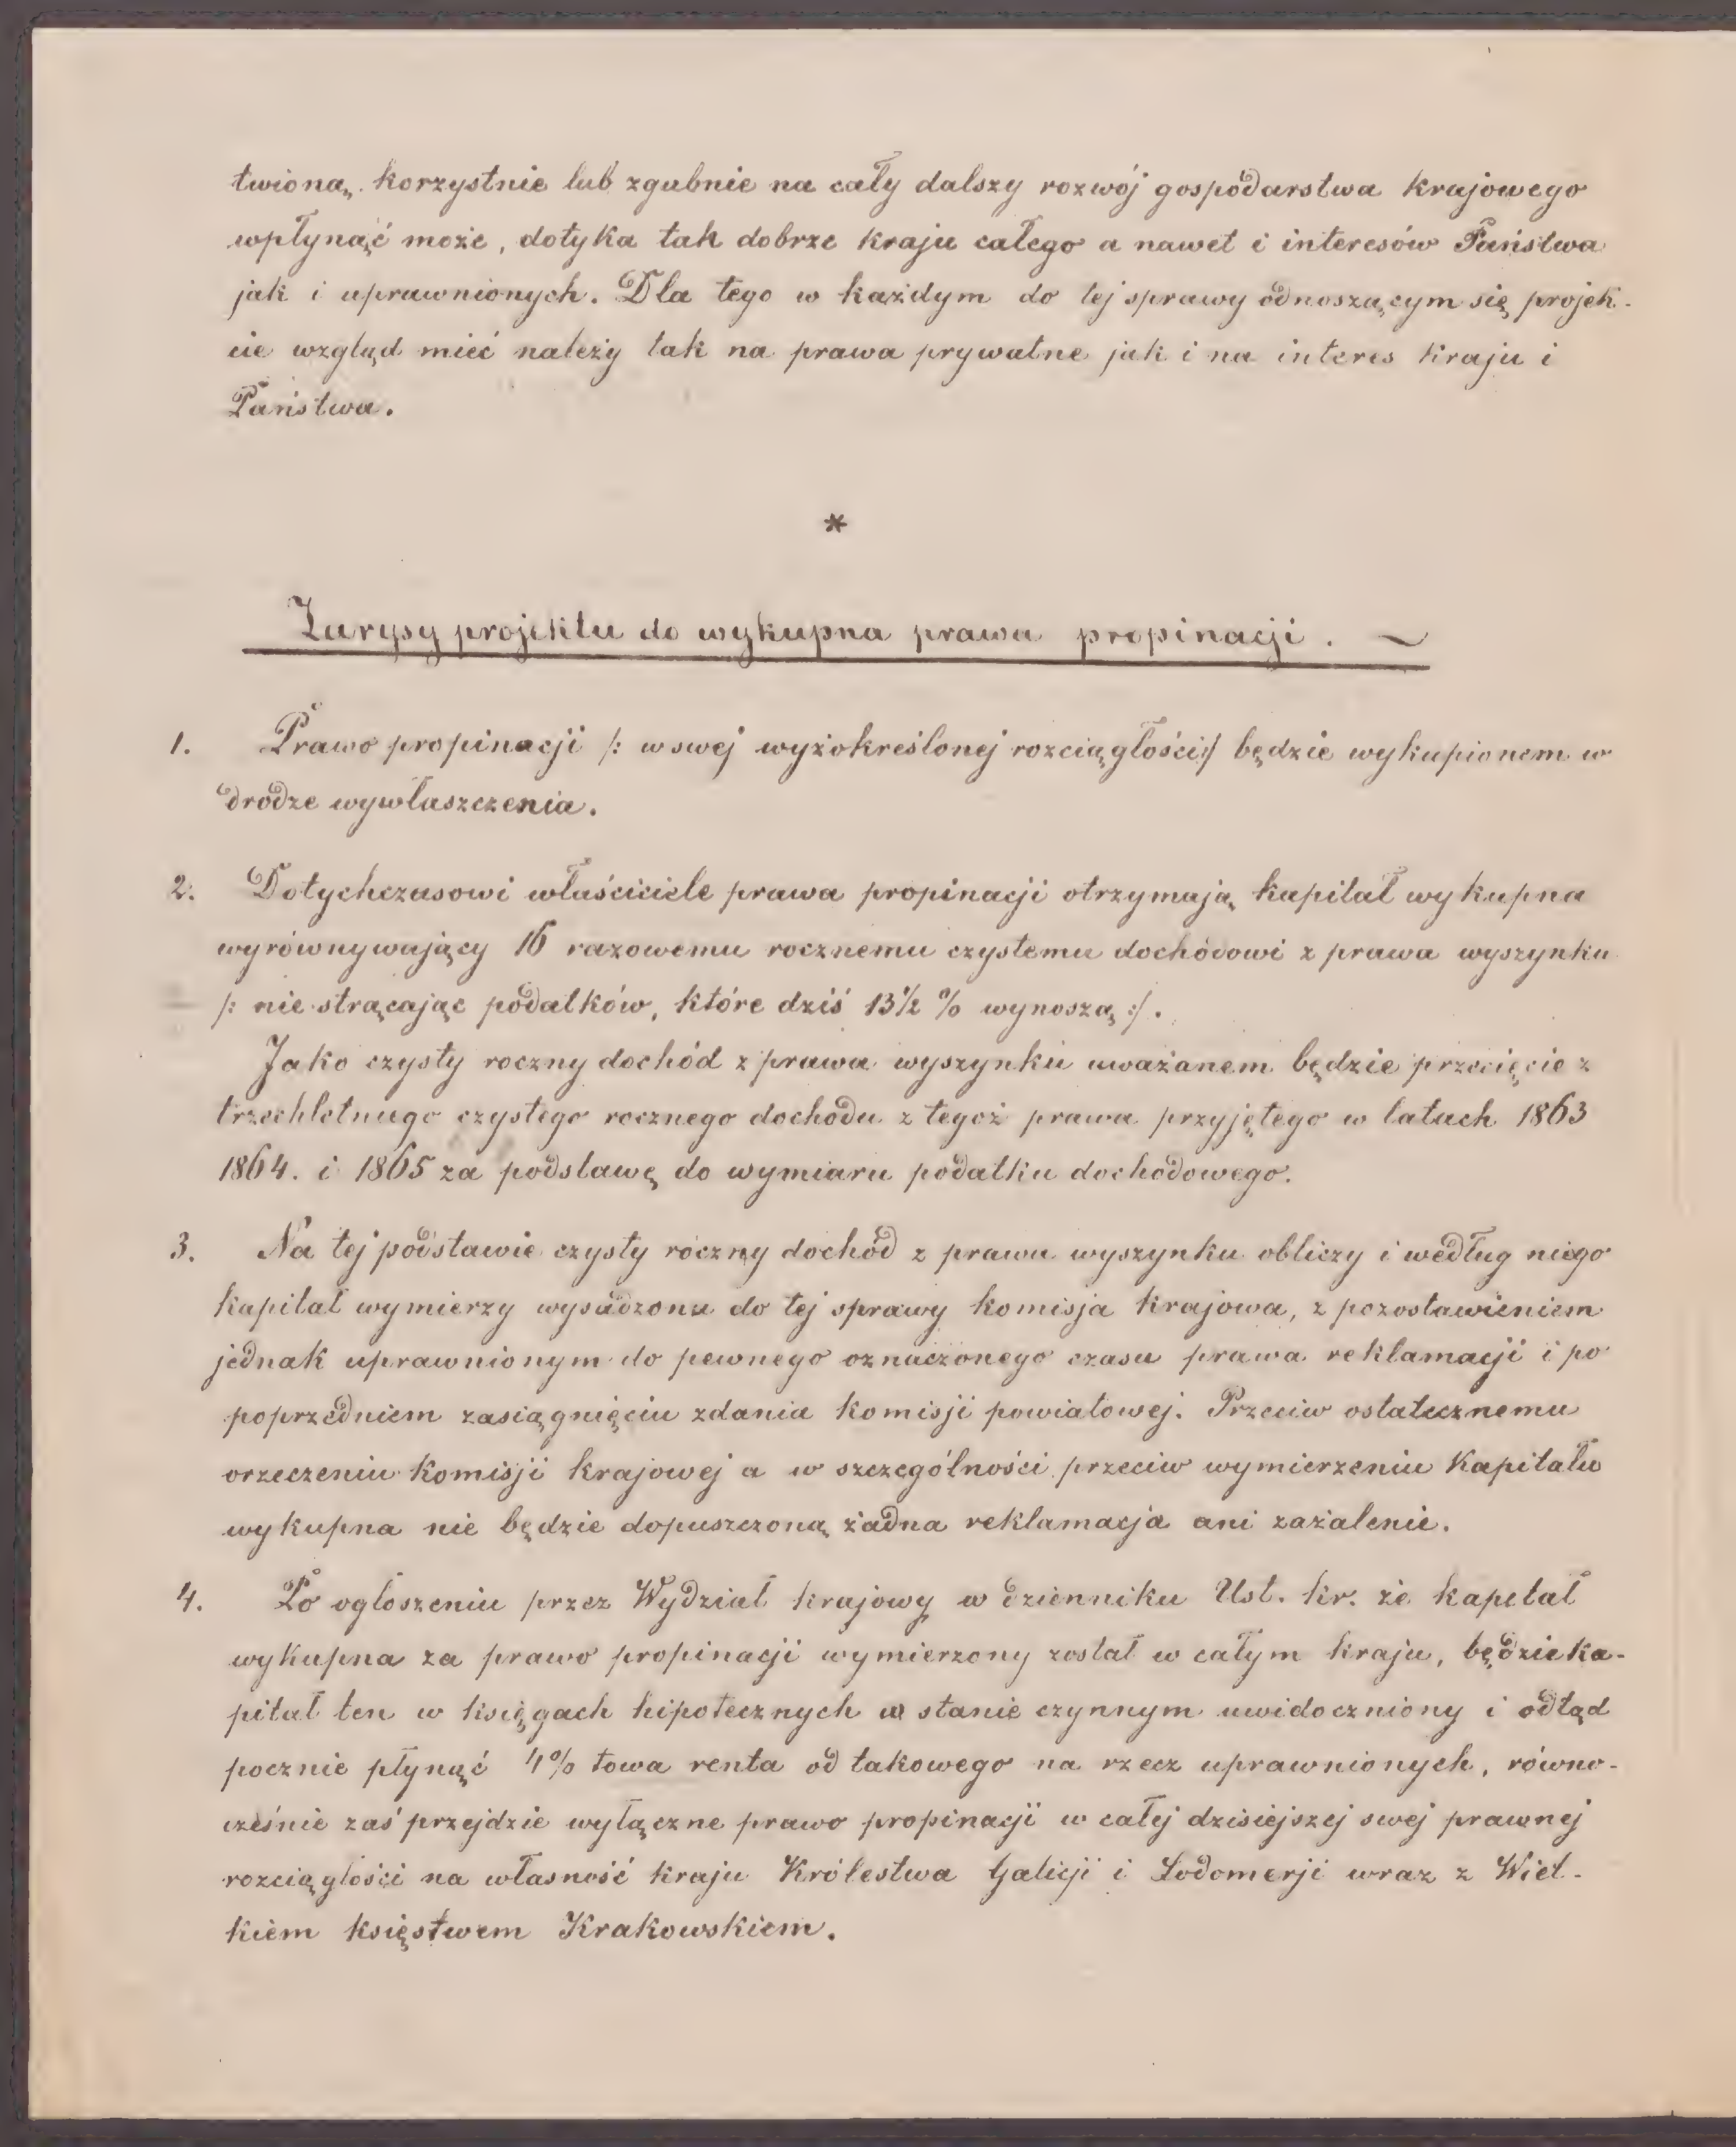 twioną, korzystnie lub zgubnie na cały dalszy rozwój gospodarstwa krajowego
wpłynąć może, dotyka tak dobrze kraju całego a nawet i interesów Państwa
jak i uprawnionych. Dla tego w każdym do tej sprawy odnoszącym się projek-
cie wzgląd mieć należy tak na prawa prywatne jak i na interes kraju i
Państwa.
*
Zarysy projektu do wykupna prawa propinacji. ~
1. Prawo propinacji /: w swej wyżokreślonej rozciągłości:/ będzie wykupionem w
drodze wywłaszczenia.
2. Dotychczasowi właściciele prawa propinacji otrzymają kapitał wykupna
wyrównywający 16 razowemu rocznemu czystemu dochodowi z prawa wyszynku
/: nie strącając podatków, które dziś 13½ % wynoszą :/.
Jako czysty roczny dochód z prawa wyszynku uważanem będzie przecięcie z
trzechletnugo czystego rocznego dochodu z tegoż prawa przyjętego w latach 1863
1864. i 1865 za podstawę do wymiaru podatku dochodowego.
3. Na tej podstawie czysty roczny dochód z prawa wyszynku obliczy i według niego
kapitał wymierzy wysadzona do tej sprawy komisja krajowa, z pozostawieniem
jednak uprawnionym do pewnego oznaczonego czasu prawa reklamacji i po
poprzedniem zasiągnięciu zdania komisji powiatowej. Przeciw ostatecznemu
orzeczeniu komisji krajowej a w szczególności przeciw wymierzeniu kapitału
wykupna nie będzie dopuszczoną żadna reklamacja ani zażalenie.
4. Po ogłoszeniu przez Wydział krajowy w dzienniku Ust. kr. że kapitał
wykupna za prawo propinacji wymierzony został w całym kraju, będzie ka-
pitał ten w księgach hipotecznych w stanie czynnym uwidoczniony i odtąd
pocznie płynąć 4% towa renta od takowego na rzecz uprawnionych, równo-
cześnie zaś przejdzie wyłączne prawo propinacji w całej dzisiejszej swej prawnej
rozciągłości na własność kraju Królestwa Galicji i Lodomerji wraz z Wiel-
kiem księstwem Krakowskiem.